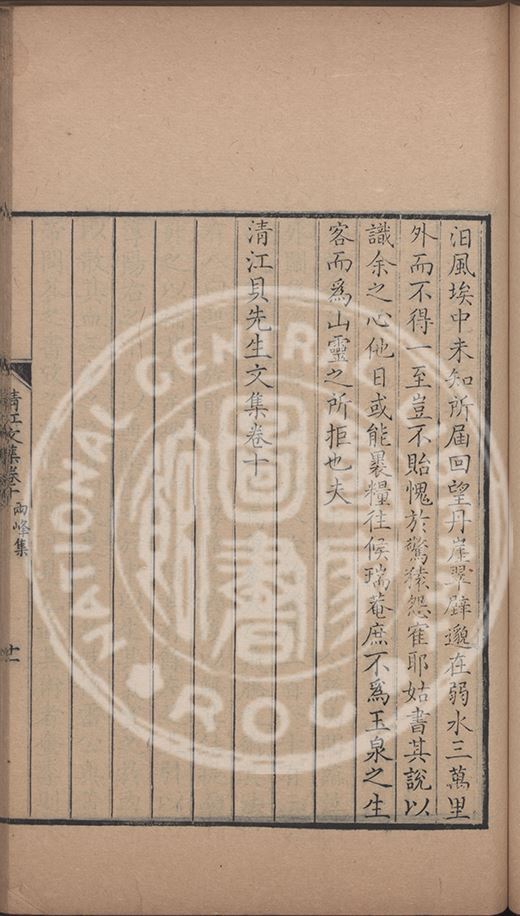 汨風埃中未知所屆回望丹崖翠壁邈在弱水三萬里
外而不得一至豈不貽愧於驚猿怨隺耶姑書其說以
識余之心他日或能褁糧往候瑞菴庶不爲玉泉之生
客而爲山靈之所拒也夫
清江貝先生文集卷十
清江文集卷十 兩峰集
十一
NATIONAL CENTRAL
R.O.C.